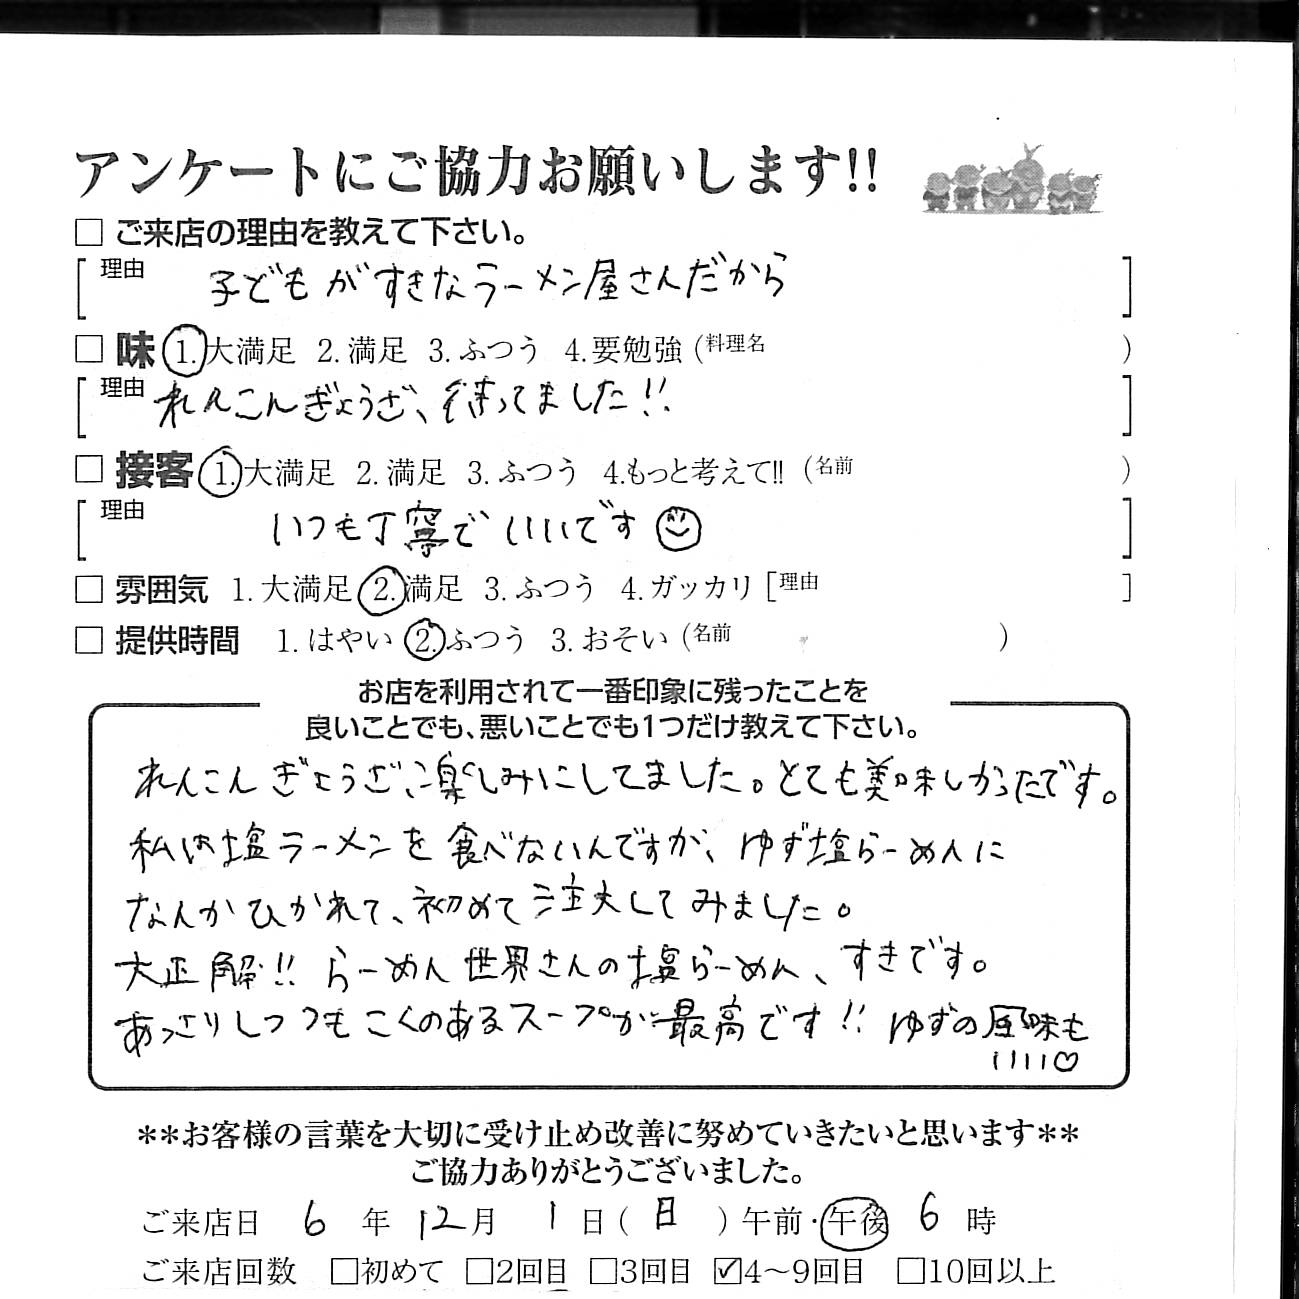 アンケートにご協力お願いします!!
□ ご来店の理由を教えて下さい。
[理由 子どもがすきなラーメン屋さんだから ]
□ 味 1. 大満足 2. 満足 3. ふつう 4. 要勉強 (料理名 )
[理由 れんこんぎょうざ、待ってました!! ]
□ 接客 1. 大満足 2. 満足 3. ふつう 4.もっと考えて!! (名前 )
[理由 いつも丁寧でいいです ]
□ 雰囲気 1. 大満足 2. 満足 3. ふつう 4. ガッカリ [理由 ]
□ 提供時間 1. はやい 2. ふつう 3. おそい (名前 )
お店を利用されて一番印象に残ったことを
良いことでも、悪いことでも1つだけ教えて下さい。
れんこんぎょうざ、楽しみにしてました。とても美味しかったです。
私は塩ラーメンを食べないんですが、ゆず塩らーめんに
なんかひかれて、初めて注文してみました。
大正解!! らーめん世界さんの塩らーめん、すきです。
あっさりしつつもこくのあるスープが最高です!! ゆずの風味も
いいい♡
**お客様の言葉を大切に受け止め改善に努めていきたいと思います**
ご協力ありがとうございました。
ご来店日 6 年 12月 1 日( 日 ) 午前・午後 6 時
ご来店回数 □初めて □2回目 □3回目 ☑4〜9回目 □10回以上